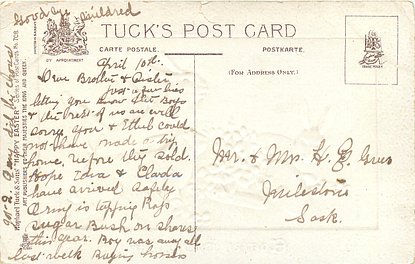 Good bye
Mildred
TUCK'S POST CARD
CARTE POSTALE.
POSTKARTE.
BY APPOINTMENT
(FOR ADDRESS ONLY.)
April 10th.
Dear Brother & Sister
Just a few lines
letting you know the Boys
& the rest of us are well
sorry you & Ethel could
not have made a trip
home, before they sold.
Hope Edna &
have arrived safely
is tapping
sugar Bush on shares
this year. Roy was away all
last week Buying horses
Mr. & Mrs. H. E.
Milestone
Sask.
Raphael Tuck & Sons' "HAPPY EASTER" Series of Post Cards
ART PUBLISHERS TO THEIR MAJESTIES THE KING AND QUEEN.